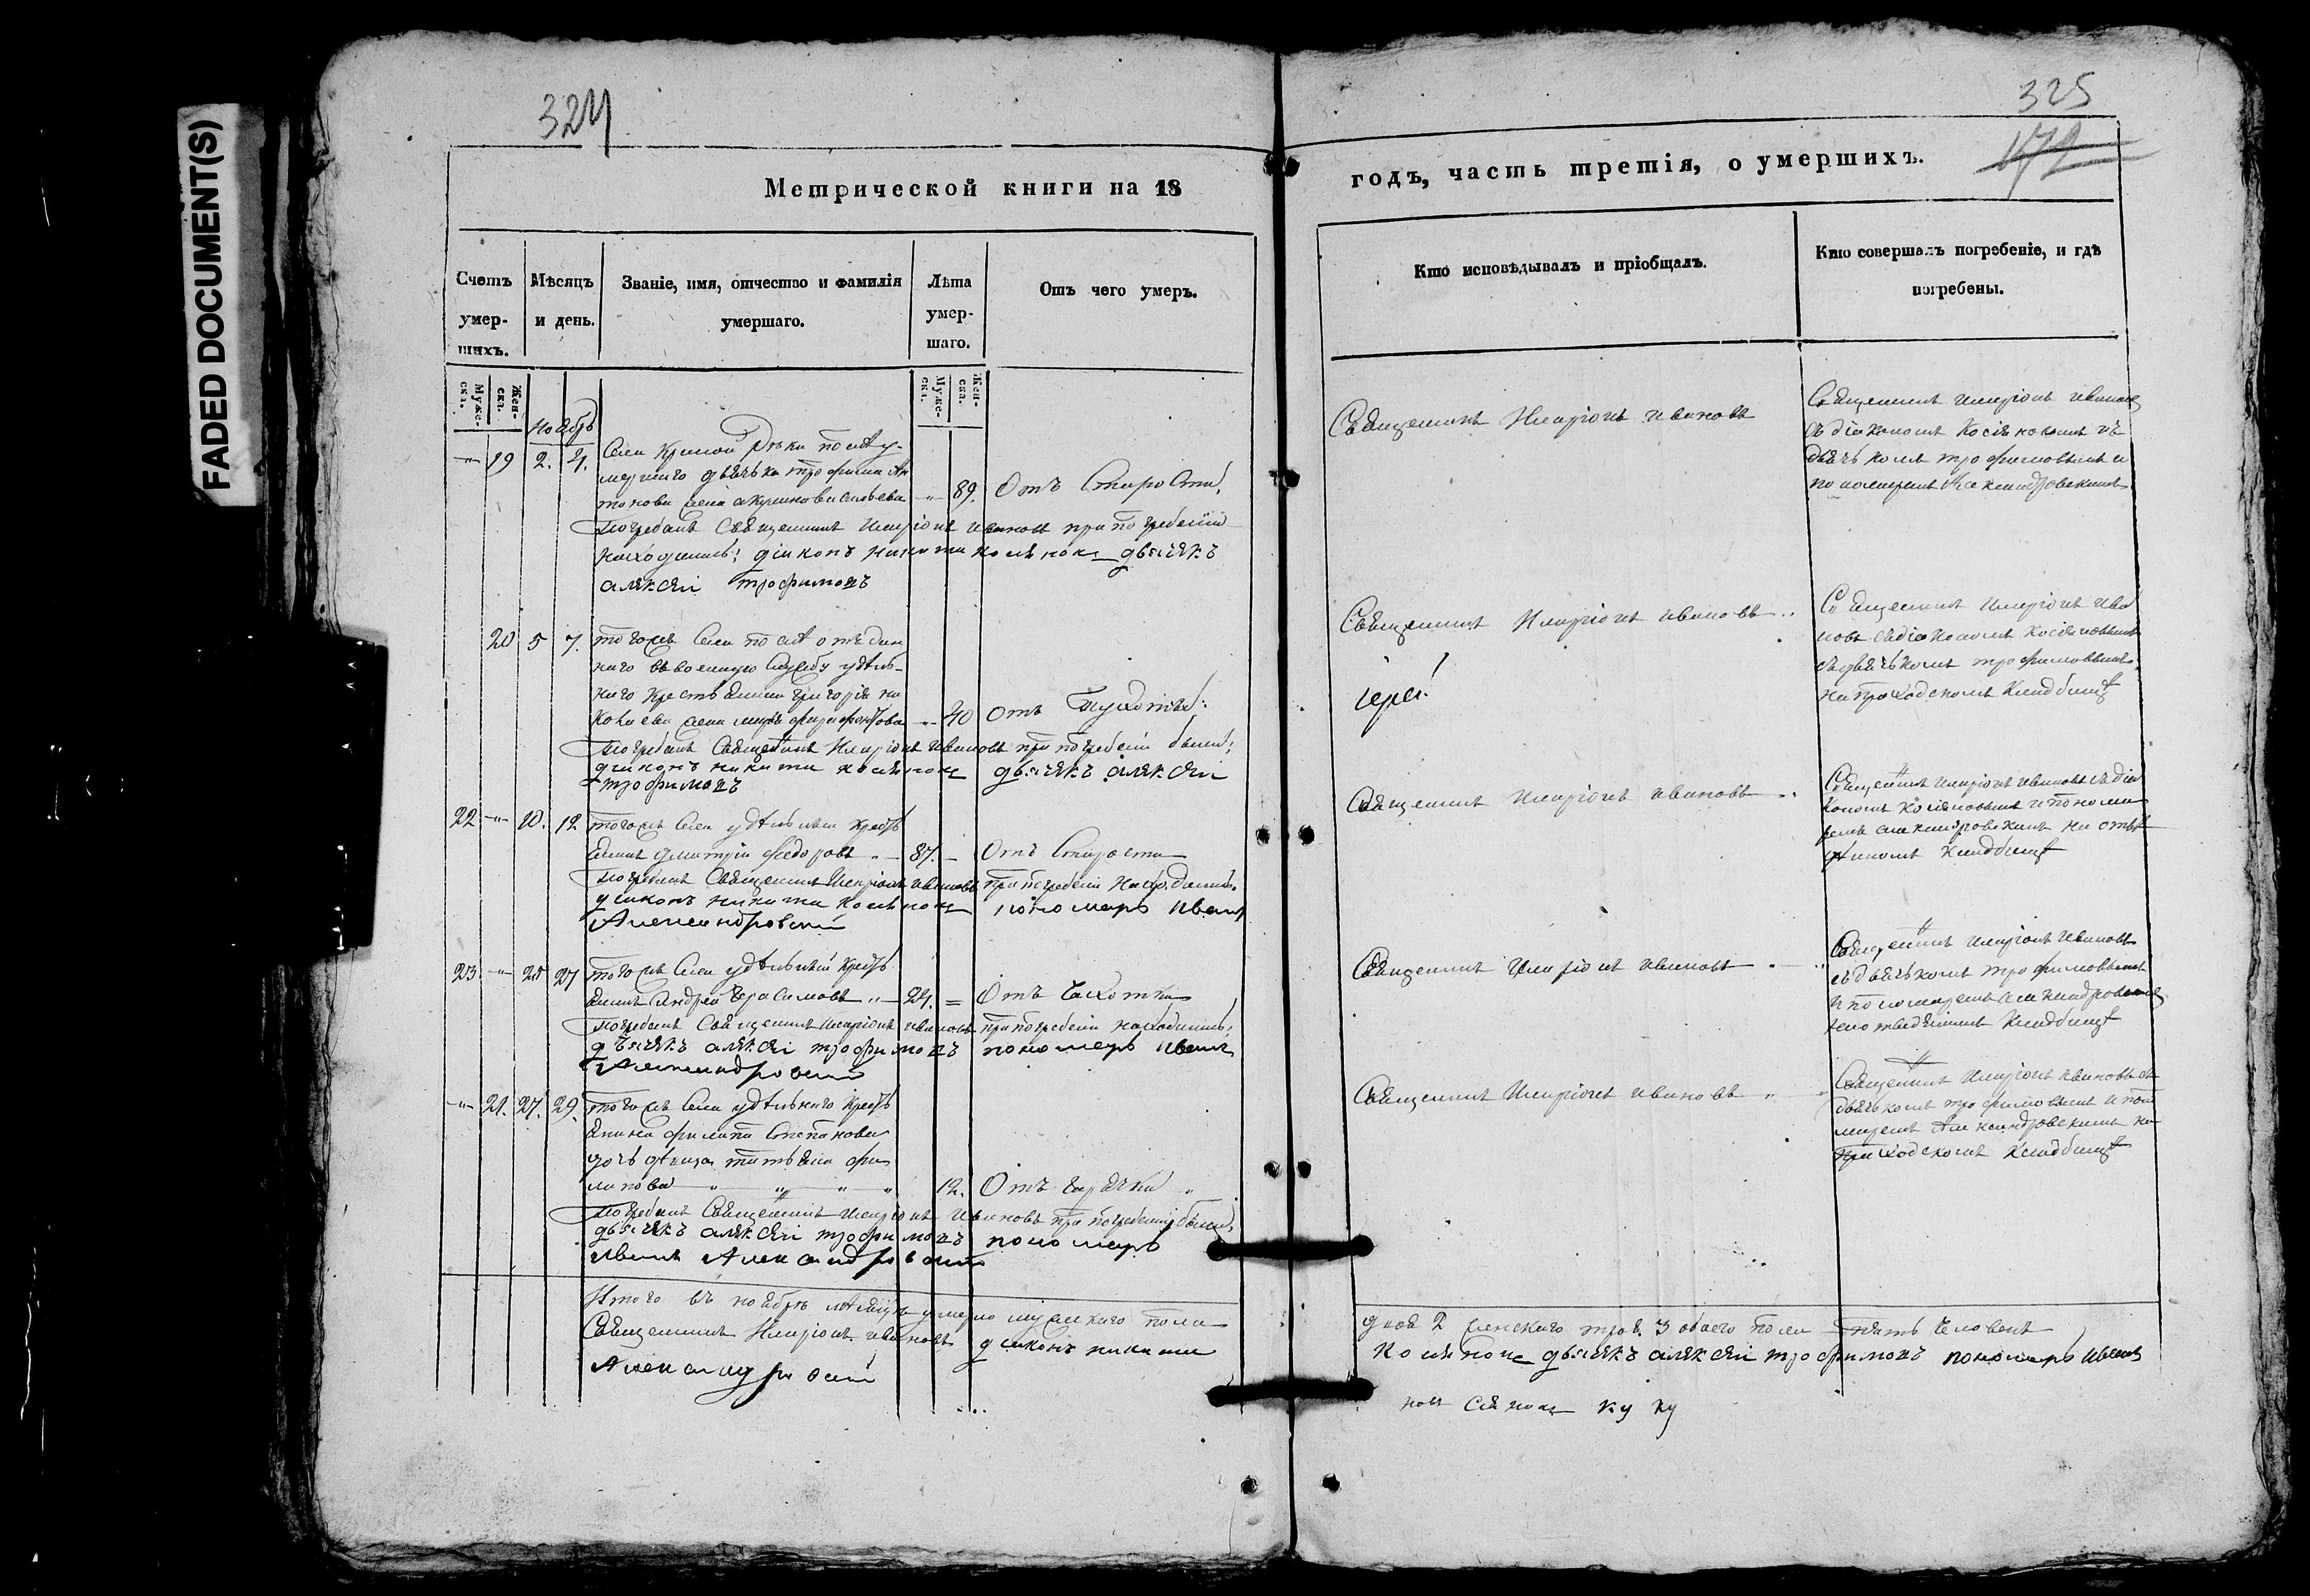 FADED DOCUMENT(S)
324
Метрической книги на 18
Счетъ
умер-
шихъ.
Мѣсяцъ
и день.
Званіе, имя, отчество и фамилія
умершаго.
Лѣта
умер-
шаго.
Отъ чего умеръ.
Муже-
ска.
Жен-
ска.
Муже-
ска.
Жен-
ска.
Ноябрь
19 2. 4. Села Кривой Рѣки послѣ у-
мершаго дьячька трофима Ан
тонова жена акулинова 89. Отъ Старости,
Погребалъ Священникъ Иларіонъ Ивановъ при погребеніи
находились: діаконъ никита дьячекъ
алексѣй трофимовъ
20 5 7. тогожъ Села послѣ отъдан
наго въ военную службу удѣль-
наго крестьянина григорія
жена 40 Отъ
Погребалъ Священникъ Иларіонъ Ивановъ при погребеніи были:
діаконъ никита дьячекъ алексѣй
трофимовъ
22 10. 12 тогожъ Села удѣльный кресть
янинъ дмитрій федоровъ 87. Отъ старости
Погребалъ Священникъ Иларіонъ Ивановъ при погребеніи находились.
діаконъ никита пономарь Иванъ
Александровскій
23 25 27 тогожъ Села удѣльный кресть
янинъ Андрей Герасимовъ 24. Отъ Чахотки
Погребалъ Священникъ Иларіонъ Ивановъ при погребеніи находились:
дьячекъ алексѣй трофимовъ пономарь Иванъ
Александровскій
21. 27. 29. тогожъ Села удѣльнаго кресть
янина филипа Степанова
дочь дѣвица татьяна фи
липова 12. Отъ Горячки
Погребалъ Священникъ Иларіонъ Ивановъ при погребеніи были,
дьячекъ алексѣй трофимовъ пономарь
Иванъ Александровскій
Итого въ ноябрѣ мѣсяцѣ умерло мужескаго пола
Священникъ Иларіонъ Ивановъ діаконъ никита
Александровскій
325
172
годъ, часть третія, о умершихъ.
Кто исповѣдывалъ и пріобщалъ.
Кто совершалъ погребеніе, и гдѣ
погребены.
Священникъ Иларіонъ Ивановъ
Священникъ Иларіонъ Ивановъ
съ діакономъ съ
дьячькомъ трофимовымъ и
пономаремъ Александровскимъ
Священникъ Иларіонъ Ивановъ
іерей
Священникъ Иларіонъ Ива
новъ съ діакономъ
съ дьячькомъ трофимовымъ
на приходскомъ кладбищѣ
Священникъ Иларіонъ Ивановъ
Священникъ Иларіонъ Ивановъ съ діа
кономъ и понома
ремъ александровскимъ на отвѣ
дѣнномъ кладбищѣ
Священникъ Иларіонъ Ивановъ
Священникъ Иларіонъ Ивановъ
съ дьячькомъ трофимовымъ
и пономаремъ Александровскимъ
кладбищѣ
Священникъ Иларіонъ Ивановъ
Священникъ Иларіонъ Ивановъ съ
дьячькомъ трофимовымъ и поно
маремъ Александровскимъ на
приходскомъ кладбищѣ
двое 2 женскаго трое 3 обоего пола пять человекъ
дьячекъ алексѣй трофимовъ пономарь Иванъ